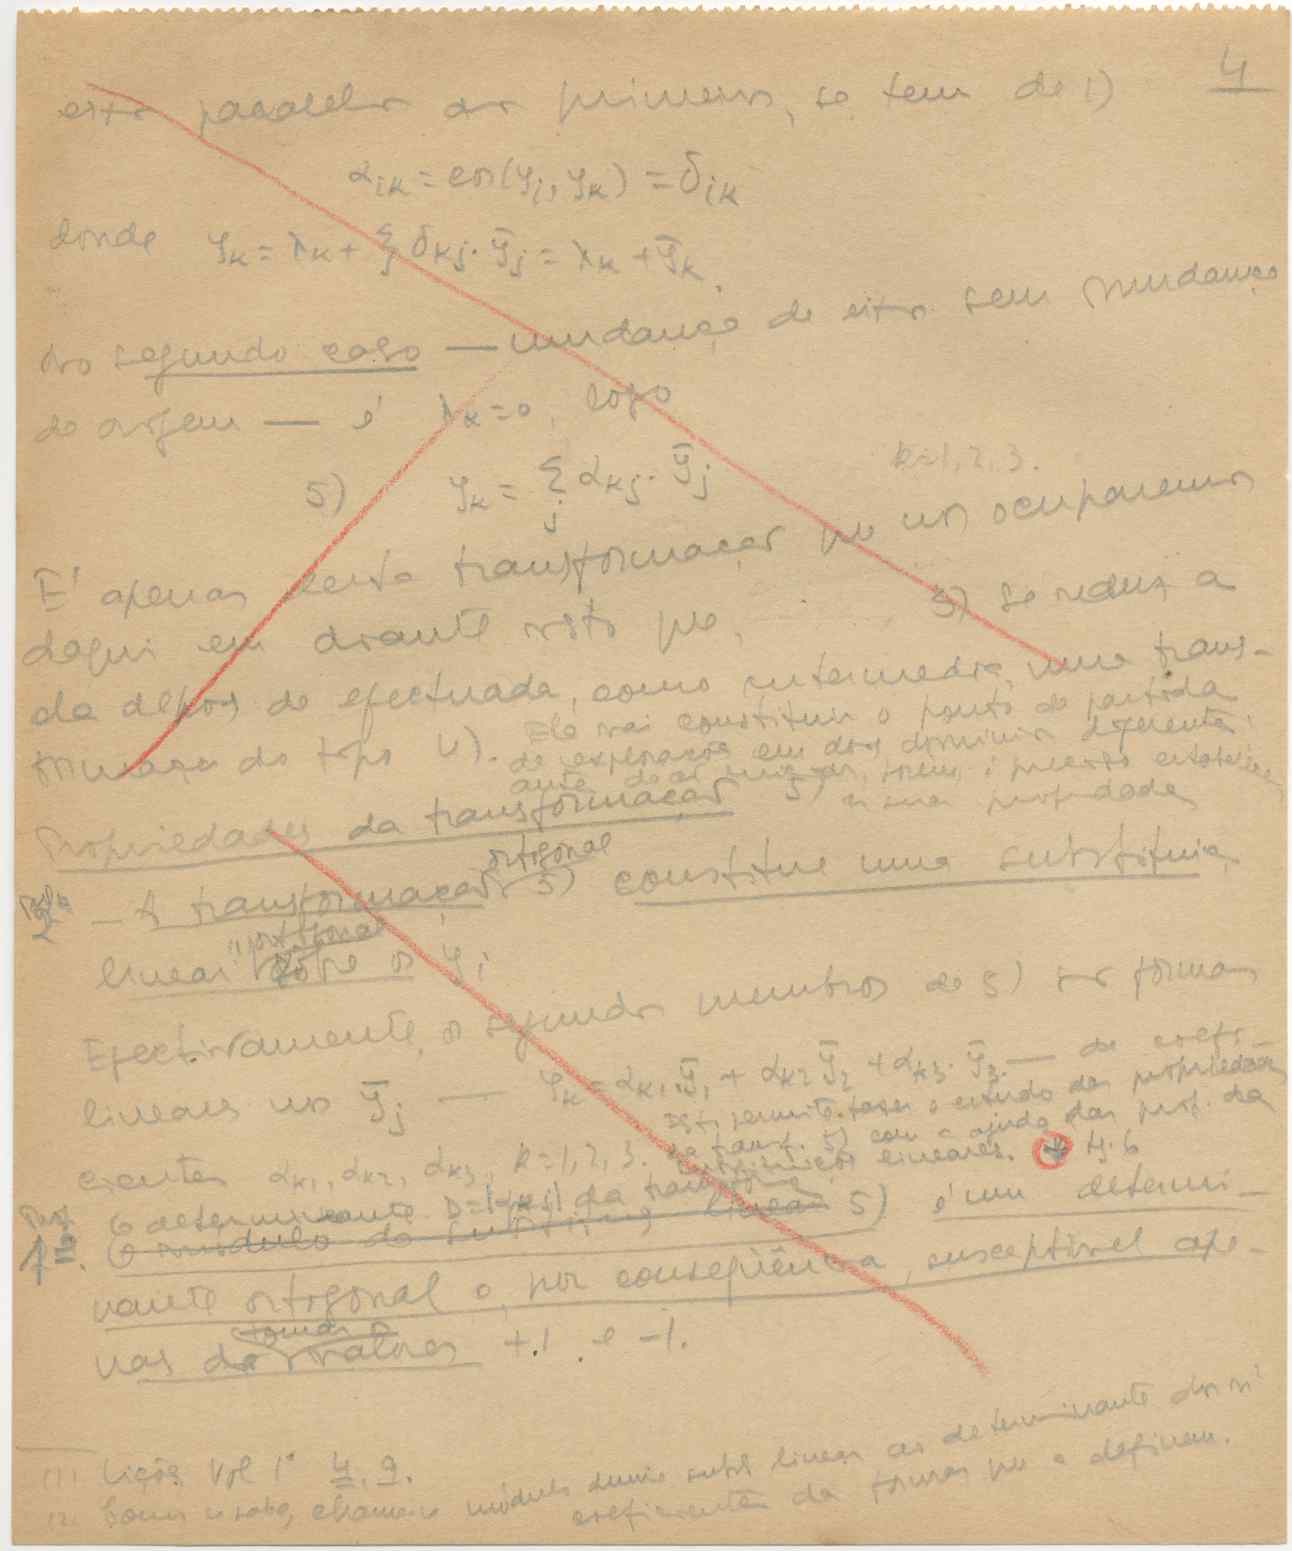 4
eixo paralelo ao primeiro, se tem de 1)
α_ik = cos(y_i, y_k) = δ_ik
donde y_k = λ_k + Σ_j δ_kj · ȳ_j = λ_k + ȳ_k.
No segundo caso — mudança de eixos sem mudança
de origem — é λ_k = 0, logo
5) y_k = Σ_j α_kj · ȳ_j k=1, 2, 3.
É apenas desta transformação que nos ocuparemos
daqui em diante visto que, 3) se reduz a
ela depois de efectuada, como intermedia, uma trans-
formação do tipo 4). Ela vai constituir o ponto de partida
de exploração em dois dominios diferentes;
antes de porem, é preciso
Propriedades da transformação 5) a sua propriedade
2 — A transformação ortogonal 5) constitue uma substituição
linear ortogonal sobre os y_i
Efectivamente, os segundos membros de 5) são formas
lineares nos ȳ_j — y_k = α_k1 ȳ_1 + α_k2 ȳ_2 + α_k3 · ȳ_3 — de coefi-
cientes α_k1, α_k2, α_k3, k=1, 2, 3.
Isto permite fazer o estudo das propriedades
da transf. 5) com a ajuda das prop. da
substituições lineares. * 4.6
O determinante D=|α_kj| da transform
O módulo da substituição linear 5) é um determi-
nante ortogonal e, por conseqüência, susceptível ape-
nas de tomar os valores +1 e -1.
(1) Lições Vol 1º 4. 9.
(2) Como se sabe, chama-se módulo duma subst linear ao determinante dos
coeficientes da formas que a definem.